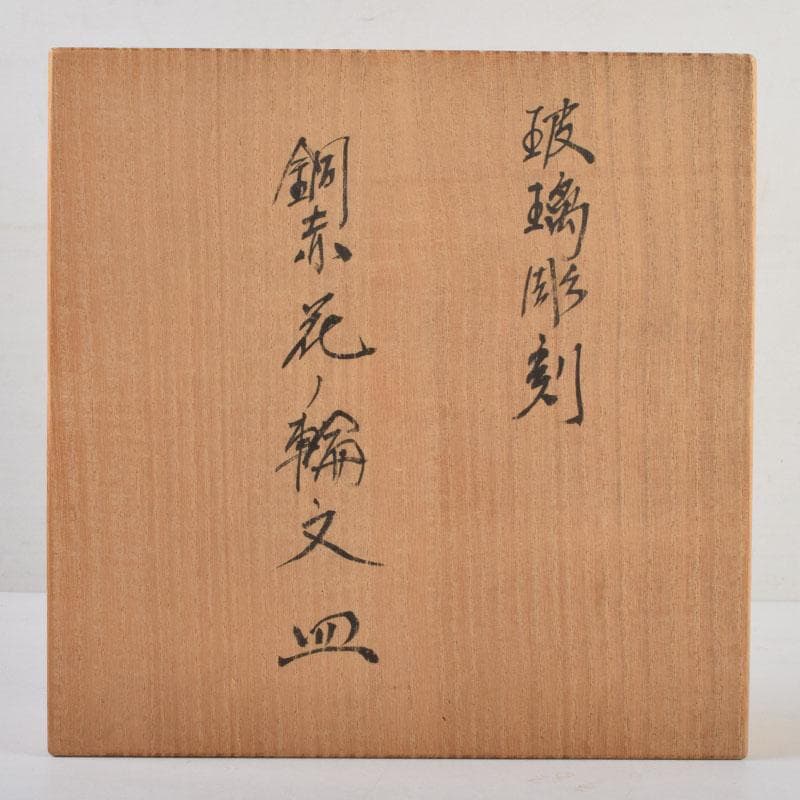 玻璃彫刻
銅赤花ノ輪文皿